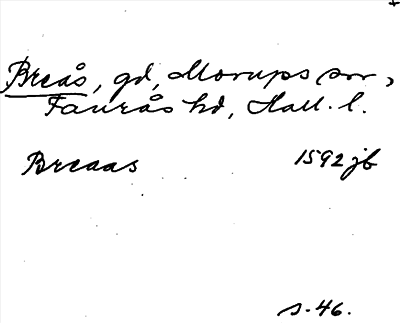 Breås, gd, Morups sn,
Faurås hd, Hall. l.
Breaas 1592 jb
s. 46.